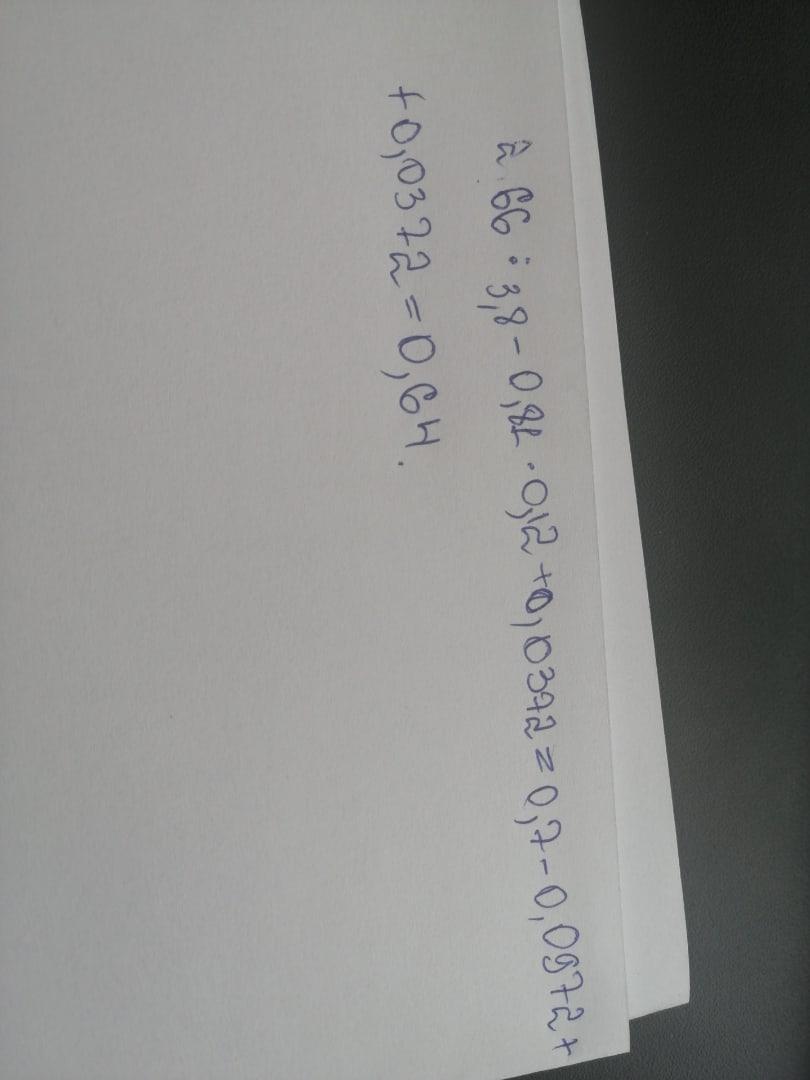 2.66 : 3,8 - 0,81 · 0,12 + 0,0372 = 0,7 - 0,0972 +
+ 0,0372 = 0,64.